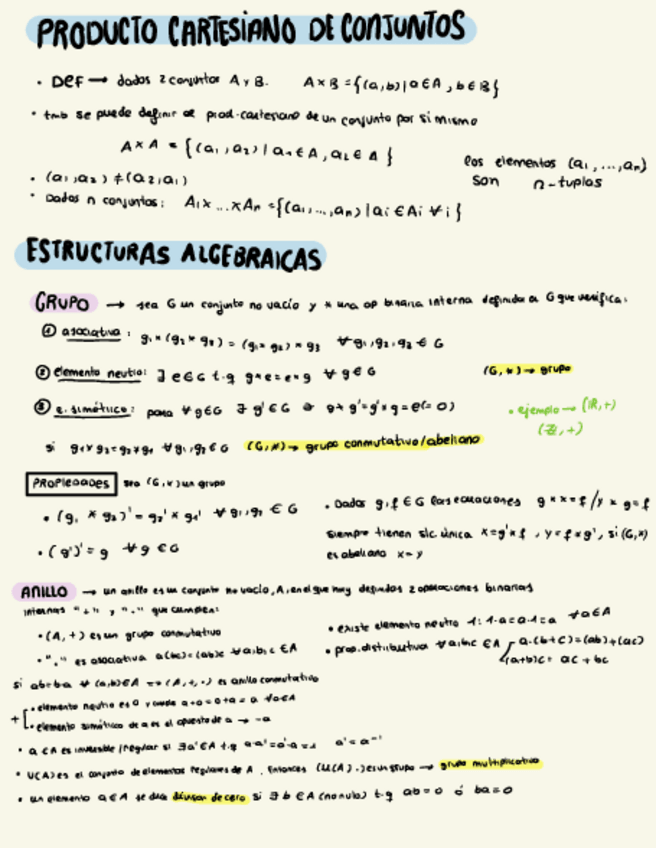 PRODUCTO CARTESIANO DE CONJUNTOS
• DEF → dados 2 conjuntos A y B. A×B = {(a,b) | a∈A, b∈B}
• tmb se puede definir el prod. cartesiano de un conjunto por si mismo
A×A = {(a₁,a₂) | a₁∈A, a₂∈A}
los elementos (a₁,...,aₙ)
son n-tuplas
• (a₁,a₂) ≠ (a₂,a₁)
• Dados n conjuntos: A₁×...×Aₙ = {(a₁,...,aₙ) | aᵢ∈Aᵢ ∀i}
ESTRUCTURAS ALGEBRAICAS
GRUPO → sea G un conjunto no vacío y * una op binaria interna definida en G que verifica:
① asociativa: g₁*(g₂*g₃) = (g₁*g₂)*g₃ ∀g₁,g₂,g₃ ∈ G
② elemento neutro: ∃ e∈G t.q g*e=e*g ∀g∈G
(G,*) → grupo
③ e. simétrico: para ∀g∈G ∃ g'∈G g*g'=g'*g=e(=0)
• ejemplo → (ℝ,+)
(ℤ,+)
si g₁*g₂=g₂*g₁ ∀g₁,g₂∈G (G,*) → grupo conmutativo/abeliano
PROPIEDADES sea (G,*) un grupo
• (g₁*g₂)' = g₂'*g₁' ∀g₁,g₂ ∈ G
• (g')' = g ∀g∈G
• Dados g,f∈G las ecuaciones g*x=f / y*g=f
siempre tienen slc. única x=g'*f, y=f*g', si (G,*)
es abeliano x=y
ANILLO → un anillo es un conjunto no vacío, A, en el que hay definidas 2 operaciones binarias
internas "+" y "·" que cumplen:
• (A,+) es un grupo conmutativo
• "·" es asociativa a(bc)=(ab)c ∀a,b,c ∈A
• existe elemento neutro 1: 1·a=a·1=a ∀a∈A
• prop. distributiva ∀a,b,c ∈A a·(b+c)=(ab)+(ac)
(a+b)c = ac+bc
si ab=ba ∀(a,b)∈A → (A,+,·) es anillo conmutativo
+ • elemento neutro es 0 y cumple a+0=0+a=a ∀a∈A
• elemento simétrico de a es el opuesto de a → -a
• a∈A es inversible/regular si ∃a'∈A t.q a·a'=a'·a=1 a'=a⁻¹
• U(A) es el conjunto de elementos regulares de A. Entonces (U(A),·) es un grupo → grupo multiplicativo
• un elemento a∈A se dice divisor de cero si ∃ b∈A (no nulo) t.q ab=0 ó ba=0